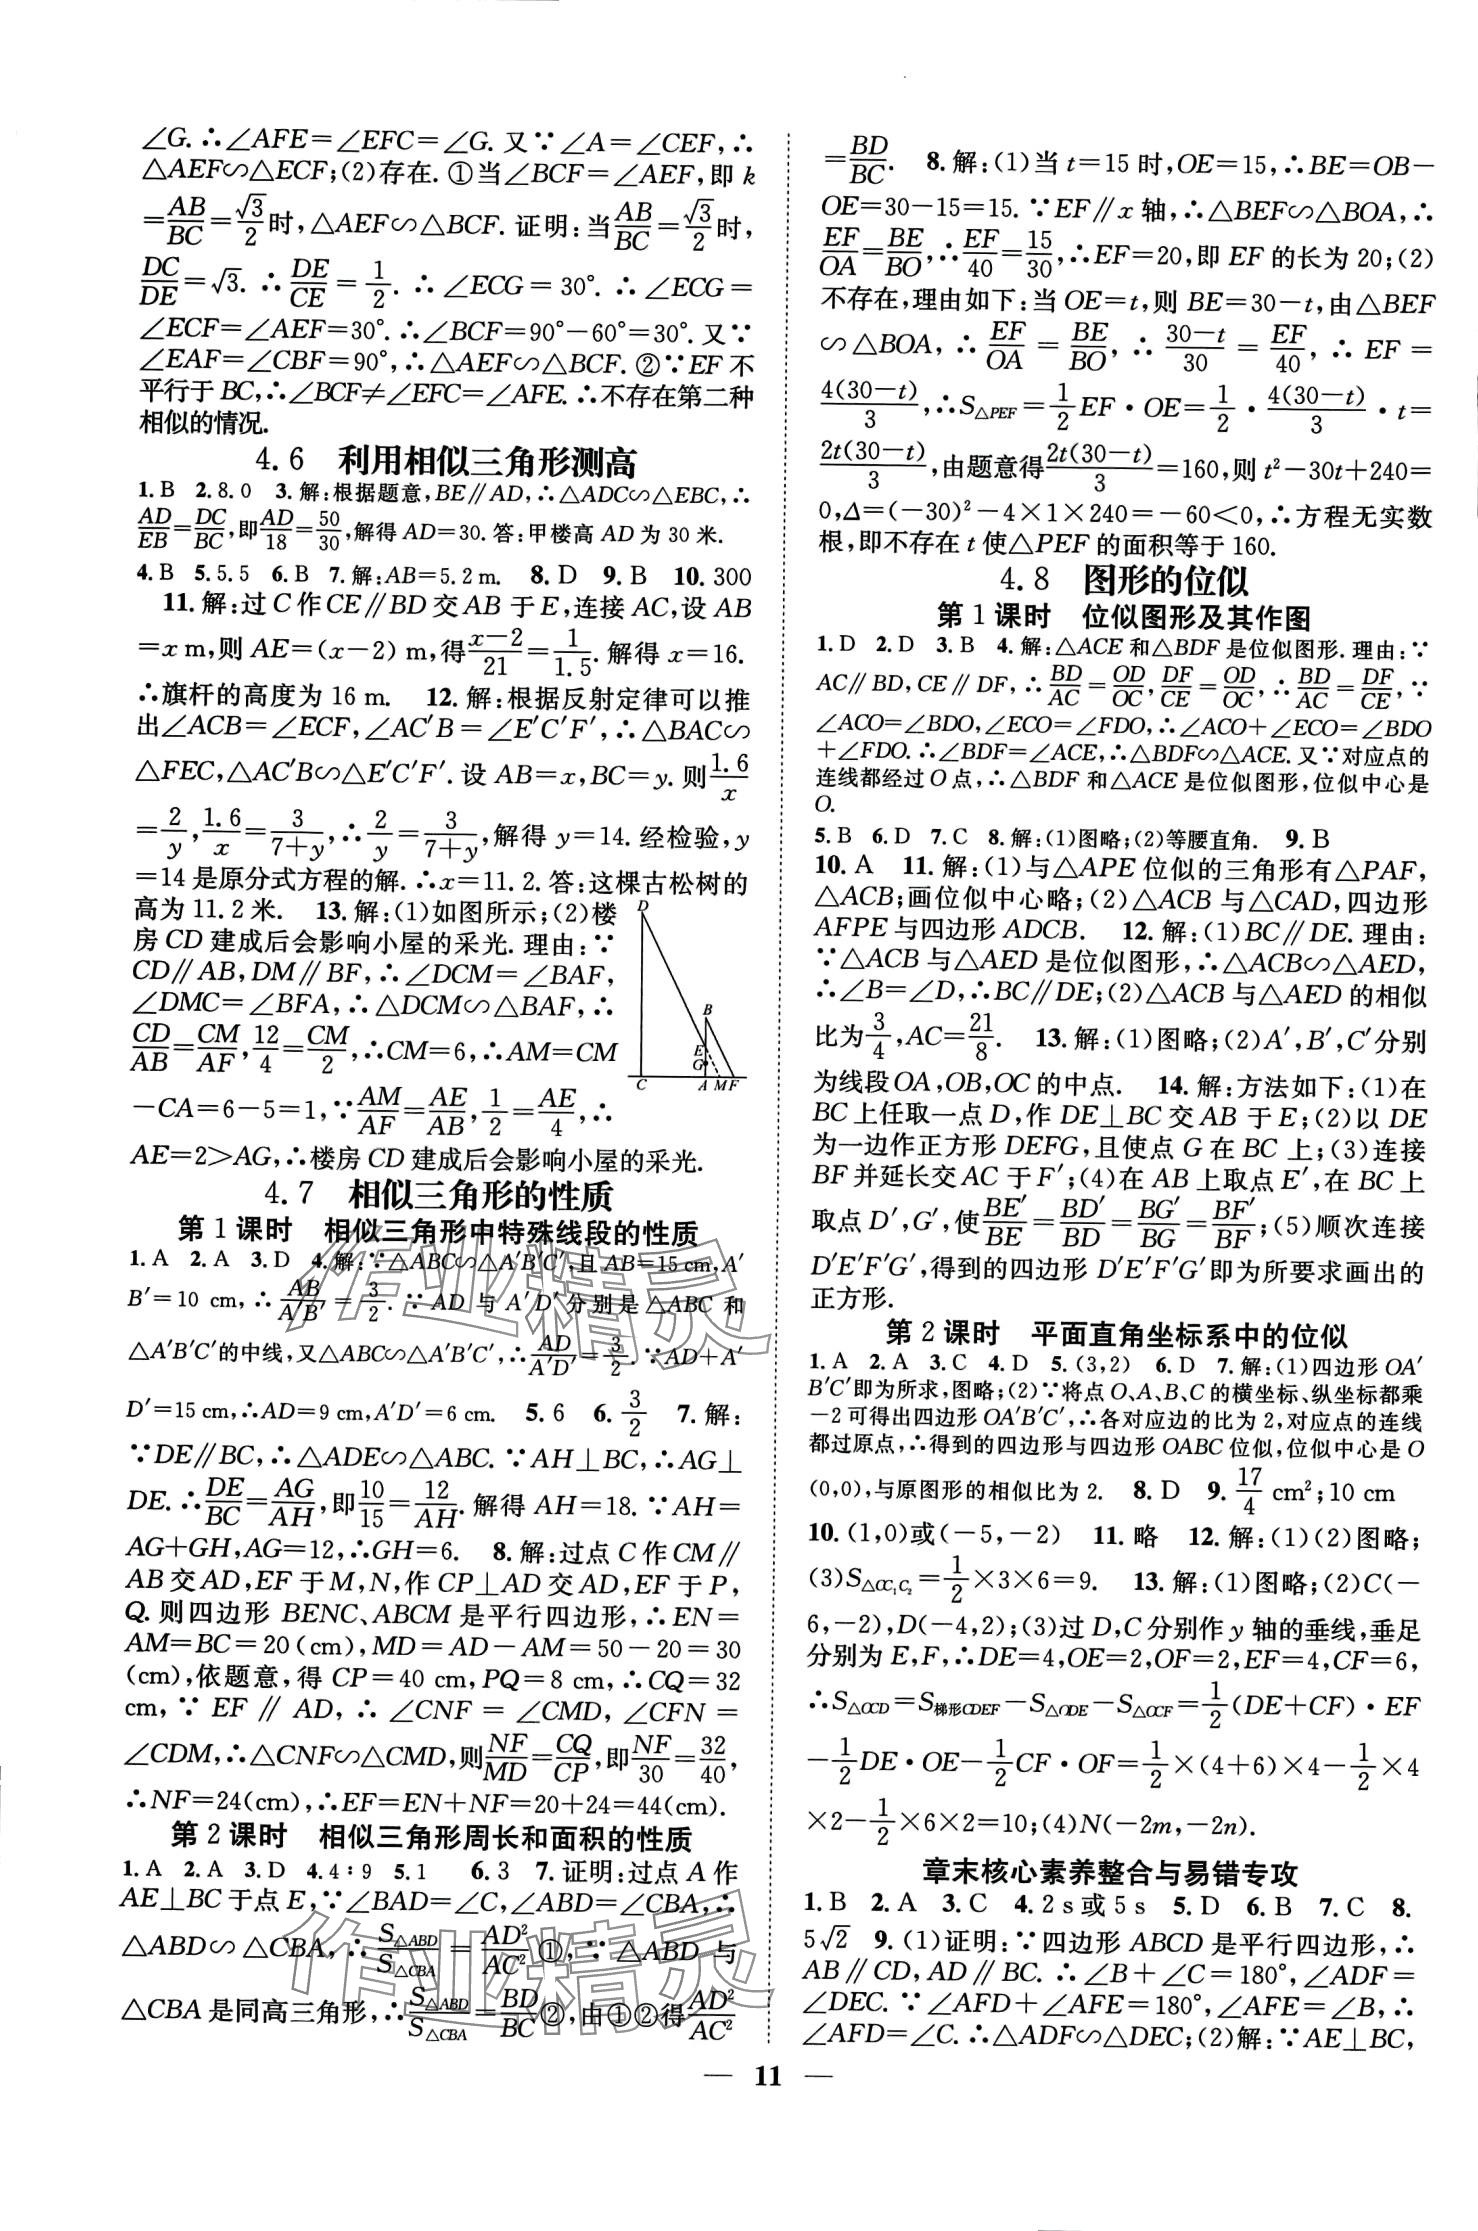 ∠G.∴∠AFE=∠EFC=∠G.又∵∠A=∠CEF,∴
△AEF∽△ECF;(2)存在.①当∠BCF=∠AEF,即k
=AB/BC=√3/2时,△AEF∽△BCF.证明:当AB/BC=√3/2时,
DC/DE=√3.∴DE/CE=1/2.∴∠ECG=30°.∴∠ECG=
∠ECF=∠AEF=30°.∴∠BCF=90°-60°=30°.又∵
∠EAF=∠CBF=90°,∴△AEF∽△BCF.②∵EF不
平行于BC,∴∠BCF≠∠EFC=∠AFE.∴不存在第二种
相似的情况.
4.6 利用相似三角形测高
1.B 2.8.0 3.解:根据题意,BE∥AD,∴△ADC∽△EBC,∴
AD/EB=DC/BC,即AD/18=50/30,解得AD=30.答:甲楼高AD为30米.
4.B 5.5.5 6.B 7.解:AB=5.2 m. 8.D 9.B 10.300
11.解:过C作CE∥BD交AB于E,连接AC,设AB
=x m,则AE=(x-2) m,得(x-2)/21=1/1.5.解得x=16.
∴旗杆的高度为16 m. 12.解:根据反射定律可以推
出∠ACB=∠ECF,∠AC′B=∠E′C′F′,∴△BAC∽
△FEC,△AC′B∽△E′C′F′.设AB=x,BC=y.则1.6/x
=2/y,1.6/x=3/(7+y),∴2/y=3/(7+y),解得y=14.经检验,y
=14是原分式方程的解.∴x=11.2.答:这棵古松树的
高为11.2米. 13.解:(1)如图所示;(2)楼
房CD建成后会影响小屋的采光.理由:∵
CD∥AB,DM∥BF,∴∠DCM=∠BAF,
∠DMC=∠BFA,∴△DCM∽△BAF,∴
CD/AB=CM/AF,12/4=CM/2,∴CM=6,∴AM=CM
D
B
E
G
C A M F
-CA=6-5=1,∵AM/AF=AE/AB,1/2=AE/4,∴
AE=2>AG,∴楼房CD建成后会影响小屋的采光.
4.7 相似三角形的性质
第1课时 相似三角形中特殊线段的性质
1.A 2.A 3.D 4.解:∵△ABC∽△A′B′C′,且AB=15 cm,A′
B′=10 cm,∴AB/A′B′=3/2.∵AD与A′D′分别是△ABC和
△A′B′C′的中线,又△ABC∽△A′B′C′,∴AD/A′D′=3/2.∵AD+A′
D′=15 cm,∴AD=9 cm,A′D′=6 cm. 5.6 6.3/2 7.解:
∵DE∥BC,∴△ADE∽△ABC.∵AH⊥BC,∴AG⊥
DE.∴DE/BC=AG/AH,即10/15=12/AH.解得AH=18.∵AH=
AG+GH,AG=12,∴GH=6. 8.解:过点C作CM∥
AB交AD,EF于M,N,作CP⊥AD交AD,EF于P,
Q.则四边形BENC、ABCM是平行四边形,∴EN=
AM=BC=20(cm),MD=AD-AM=50-20=30
(cm),依题意,得CP=40 cm,PQ=8 cm,∴CQ=32
cm,∵EF∥AD,∴∠CNF=∠CMD,∠CFN=
∠CDM,∴△CNF∽△CMD,则NF/MD=CQ/CP,即NF/30=32/40,
∴NF=24(cm),∴EF=EN+NF=20+24=44(cm).
第2课时 相似三角形周长和面积的性质
1.A 2.A 3.D 4.4∶9 5.1 6.3 7.证明:过点A作
AE⊥BC于点E,∵∠BAD=∠C,∠ABD=∠CBA,∴
△ABD∽△CBA,∴S△ABD/S△CBA=AD²/AC²①,∵△ABD与
△CBA是同高三角形,∴S△ABD/S△CBA=BD/BC②,由①②得AD²/AC²
=BD/BC. 8.解:(1)当t=15时,OE=15,∴BE=OB-
OE=30-15=15.∵EF∥x轴,∴△BEF∽△BOA,∴
EF/OA=BE/BO,∴EF/40=15/30,∴EF=20,即EF的长为20;(2)
不存在,理由如下:当OE=t,则BE=30-t,由△BEF
∽△BOA,∴EF/OA=BE/BO,∴(30-t)/30=EF/40,∴EF=
4(30-t)/3,∴S△PEF=1/2EF·OE=1/2·4(30-t)/3·t=
2t(30-t)/3,由题意得2t(30-t)/3=160,则t²-30t+240=
0,Δ=(-30)²-4×1×240=-60<0,∴方程无实数
根,即不存在t使△PEF的面积等于160.
4.8 图形的位似
第1课时 位似图形及其作图
1.D 2.D 3.B 4.解:△ACE和△BDF是位似图形.理由:∵
AC∥BD,CE∥DF,∴BD/AC=OD/OC,DF/CE=OD/OC,∴BD/AC=DF/CE,∵
∠ACO=∠BDO,∠ECO=∠FDO,∴∠ACO+∠ECO=∠BDO
+∠FDO.∴∠BDF=∠ACE,∴△BDF∽△ACE.又∵对应点的
连线都经过O点,∴△BDF和△ACE是位似图形,位似中心是
O.
5.B 6.D 7.C 8.解:(1)图略;(2)等腰直角. 9.B
10.A 11.解:(1)与△APE位似的三角形有△PAF,
△ACB;画位似中心略;(2)△ACB与△CAD,四边形
AFPE与四边形ADCB. 12.解:(1)BC∥DE.理由:
∵△ACB与△AED是位似图形,∴△ACB∽△AED,
∴∠B=∠D,∴BC∥DE;(2)△ACB与△AED的相似
比为3/4,AC=21/8. 13.解:(1)图略;(2)A′,B′,C′分别
为线段OA,OB,OC的中点. 14.解:方法如下:(1)在
BC上任取一点D,作DE⊥BC交AB于E;(2)以DE
为一边作正方形DEFG,且使点G在BC上;(3)连接
BF并延长交AC于F′;(4)在AB上取点E′,在BC上
取点D′,G′,使BE′/BE=BD′/BD=BG′/BG=BF′/BF;(5)顺次连接
D′E′F′G′,得到的四边形D′E′F′G′即为所要求画出的
正方形.
第2课时 平面直角坐标系中的位似
1.A 2.A 3.C 4.D 5.(3,2) 6.D 7.解:(1)四边形OA′
B′C′即为所求,图略;(2)∵将点O、A、B、C的横坐标、纵坐标都乘
-2可得出四边形OA′B′C′,∴各对应边的比为2,对应点的连线
都过原点,∴得到的四边形与四边形OABC位似,位似中心是O
(0,0),与原图形的相似比为2. 8.D 9.17/4 cm²;10 cm
10.(1,0)或(-5,-2) 11.略 12.解:(1)(2)图略;
(3)S△CC₁C₂=1/2×3×6=9. 13.解:(1)图略;(2)C(-
6,-2),D(-4,2);(3)过D,C分别作y轴的垂线,垂足
分别为E,F,∴DE=4,OE=2,OF=2,EF=4,CF=6,
∴S△OCD=S梯形CDEF-S△ODE-S△OCF=1/2(DE+CF)·EF
-1/2DE·OE-1/2CF·OF=1/2×(4+6)×4-1/2×4
×2-1/2×6×2=10;(4)N(-2m,-2n).
章末核心素养整合与易错专攻
1.B 2.A 3.C 4.2 s或5 s 5.D 6.B 7.C 8.
5√2 9.(1)证明:∵四边形ABCD是平行四边形,∴
AB∥CD,AD∥BC.∴∠B+∠C=180°,∠ADF=
∠DEC.∵∠AFD+∠AFE=180°,∠AFE=∠B,∴
∠AFD=∠C.∴△ADF∽△DEC;(2)解:∵AE⊥BC,
— 11 —
作业精灵
作业精灵